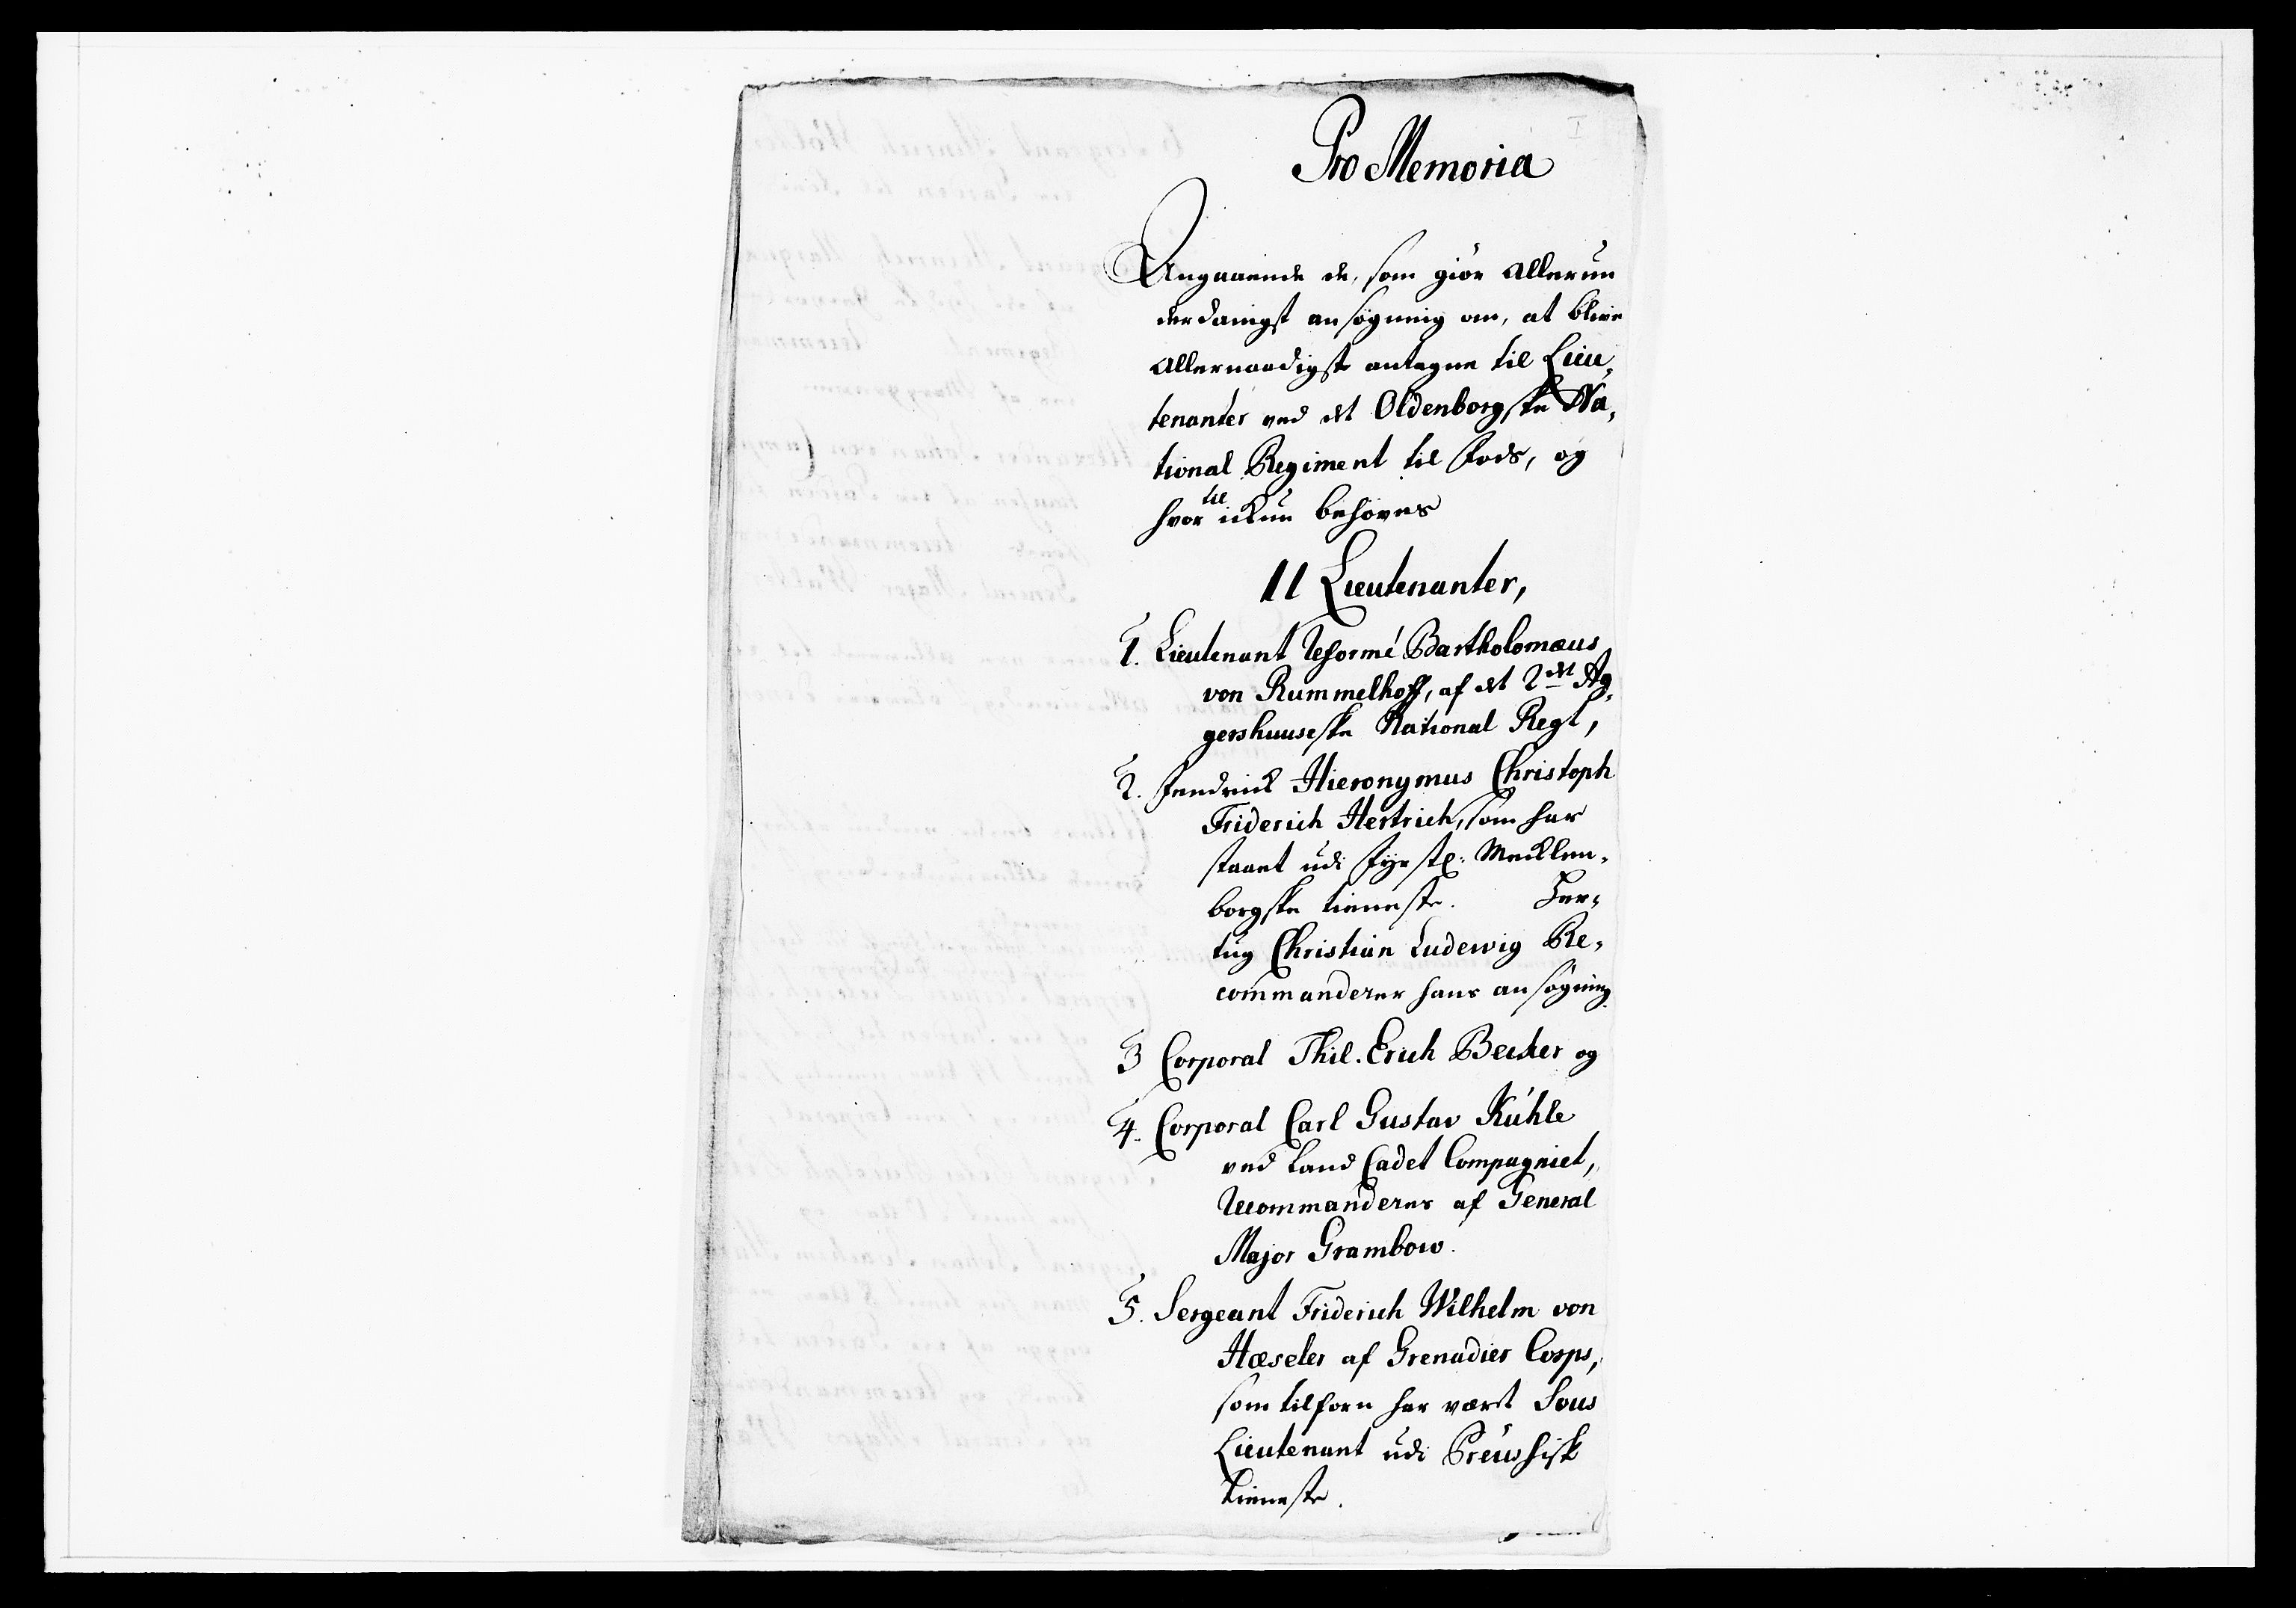 I
Pro Memoria
Angaaende de, som giör allerun
derdanigst ansögning om, at blive
allernaadigst antagne til Lieu,
tenanter ved det Oldenborgske Na,
tional Regiment til Fods, og
hvor til ickun behöves
11 Lieutenanter,
1. Lieutenant Reformé Bartholomæus
von Rummelhoff, af det 2det Ag,
gershuuseske National Regt,
2. Fendrick Hieronymus Christoph
Friderich Hertrich, som har
staaet udi Fyrstl: Mecklen,
borgske tieneste. Her,
tug Christian Ludewig Re,
commanderer hans ansögning
3 Corporal Phil. Erich Becker og
4. Corporal Carl Gustav Kühle
ved Land Cadet Compagniet,
Recommanderes af General
Major Grambow.
5. Sergeant Friderich Wilhelm von
Hæseler af Grenadier Corps,
som tilforn har været Sous
Lieutenant udi Preussisk
tieneste.